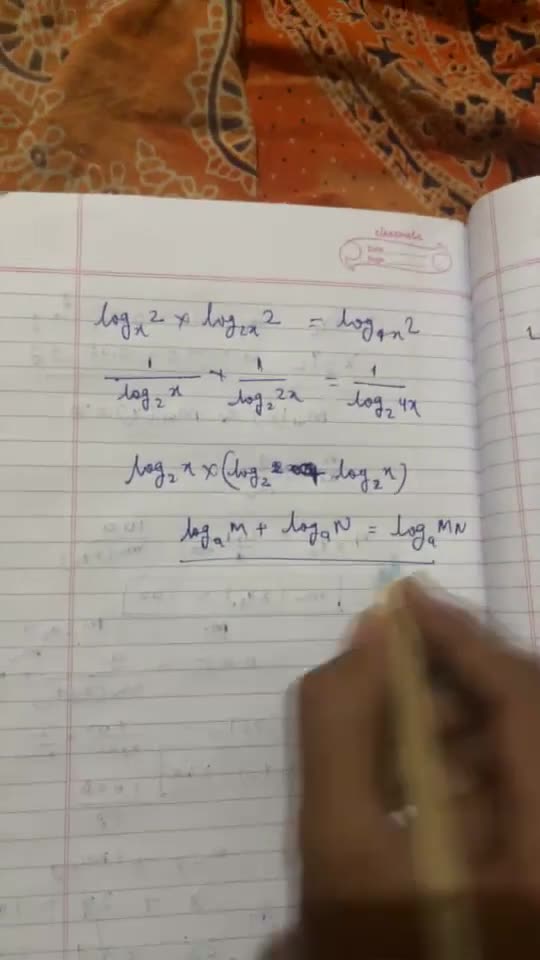 classmate
Date
Page
logₓ2 × log₂ₓ2 = log₄ₓ2
1/log₂x × 1/log₂2x = 1/log₂4x
log₂x × (log₂2 + log₂x)
logₐM + logₐN = logₐMN